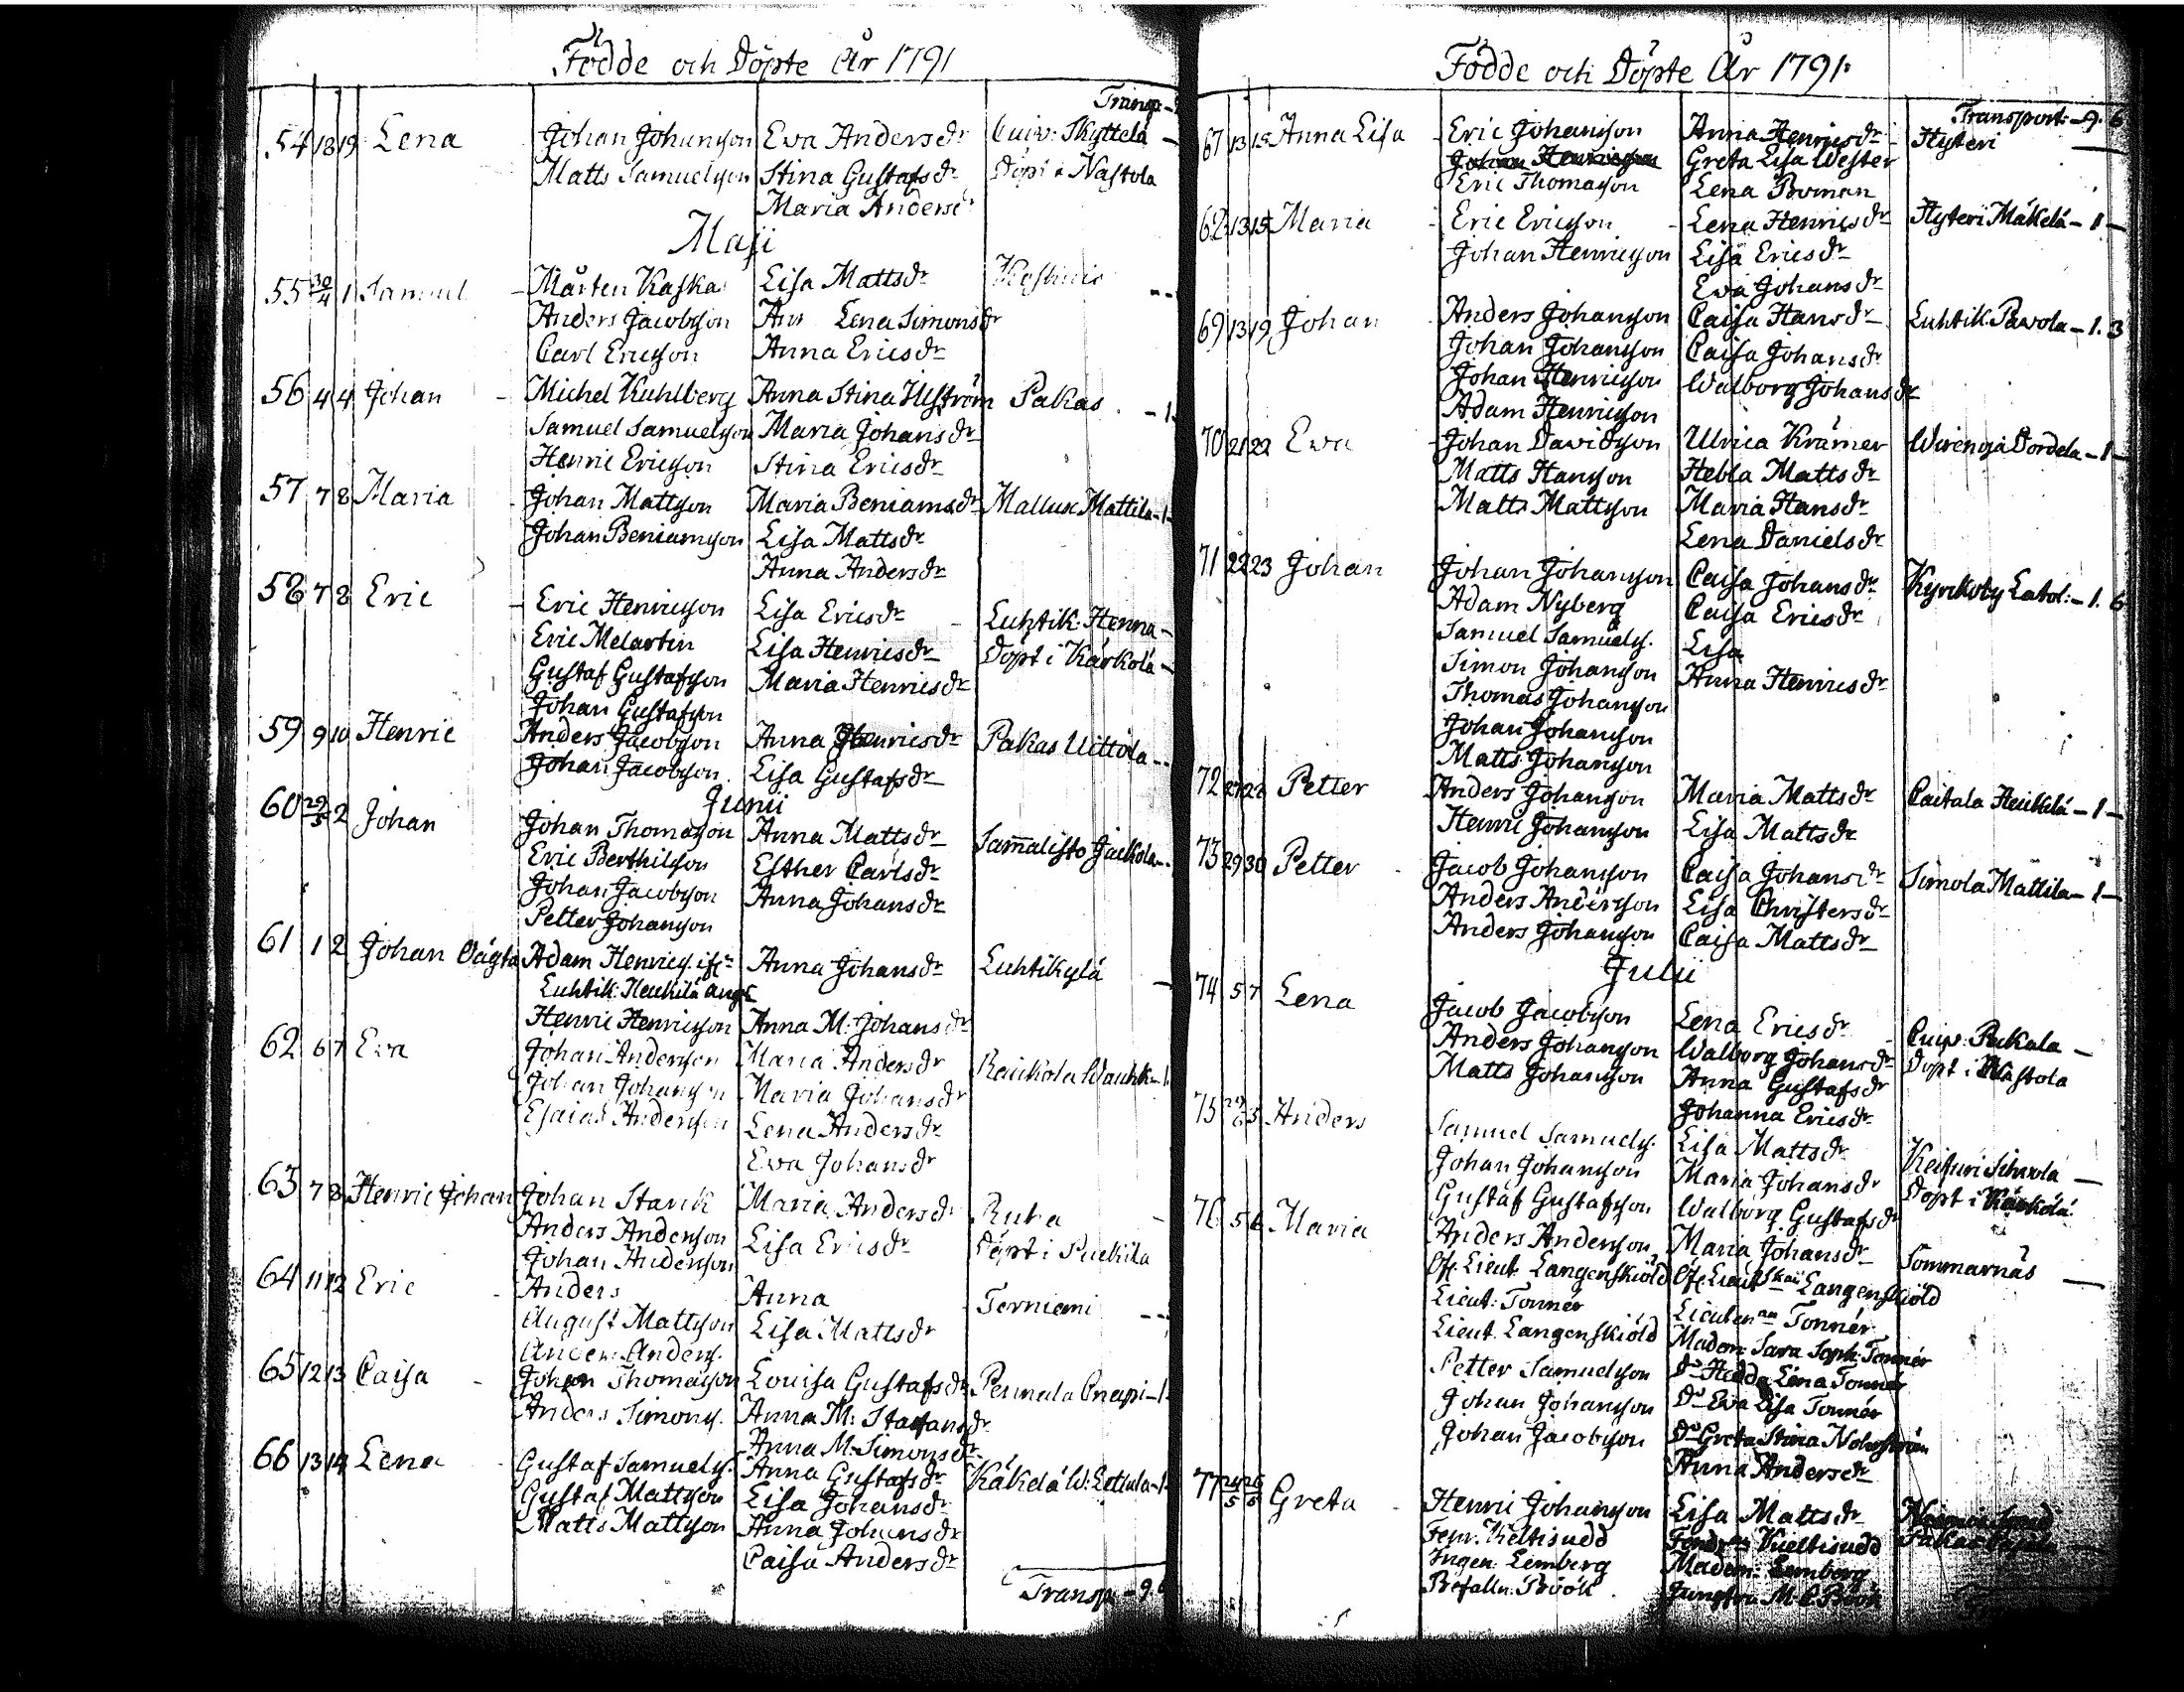 Födde och Döpte År 1791
Transp.
54 18 19 Lena Johan Johansson Ewa Andersdr Cuiv: Skyttelä
Matts Samuelsson Stina Gustafsdr Döpt i Nastola
Maria Andersdr
Maji
55 30/4 1 Samuel Mårten Kaska Lisa Mattsdr
Anders Jacobsson Lena Simonsdr
Carl Ericsson Anna Ericsdr
56 4 4 Johan Michel Kuhlberg Anna Stina Pakas 1
Samuel Samuelsson Maria Johansdr
Henric Ericsson Stina Ericsdr
57 7 8 Maria Johan Mattsson Maria Beniamsdr Mallusc Mattila 1
Johan Beniamsson Lisa Mattsdr
Anna Andersdr
58 7 8 Eric Eric Henricsson Lisa Ericsdr Luhtik: Henna
Eric Melartin Lisa Henricsdr Döpt i Kärkölä
Gustaf Gustafsson Maria Henricsdr
Johan Gustafsson
59 9 10 Henric Anders Jacobsson Anna Henricsdr Pakas Uittola
Johan Jacobsson Lisa Gustafsdr
Junii
60 29/5 2 Johan Johan Thomasson Anna Mattsdr Sam̄alisto Jackola
Eric Berthilsson Esther Carlsdr
Johan Jacobsson Anna Johansdr
Petter Johansson
61 1 2 Johan Oägta Adam Henrics. Anna Johansdr Luhtikylä
Luhtik: Heickilä
Henric Henricsson Anna M: Johansdr
62 6 7 Eva Johan Andersson Maria Andersdr Raickola Wauhk 1
Johan Johansson Maria Johansdr
Esaias Andersson Lena Andersdr
Ewa Johansdr
63 7 8 Henric Johan Johan Starck Maria Andersdr Ruha
Anders Andersson Lisa Ericsdr Döpt i
Johan Andersson
64 11 12 Eric Anders Anna Torniemi
August Mattsson Lisa Mattsdr
Anders Anders.
65 12 13 Caisa Johan Thomasson Louisa Gustafsdr Pennala 1
Anders Simons. Anna M: Staffansdr
Anna M: Simonsdr
66 13 14 Lena Gustaf Samuels. Anna Gustafsdr Käkelä W: 1
Gustaf Mattsson Lisa Johansdr
Matts Mattsson Anna Johansdr
Caisa Andersdr
Transp 9.
Födde och Döpte År 1791
Transport: 9. 6
67 13 15 Anna Lisa Eric Johansson Anna Henricsdr Hyteri
Johan Henricsson Greta Lisa Wester
Eric Thomasson Lena Boman
68 13 15 Maria Eric Ericsson Lena Henricsdr Hyteri Mäkelä 1
Johan Henricsson Lisa Ericsdr
Ewa Johansdr
69 13 19 Johan Anders Johansson Caisa Hansdr Luhtik: Pavola 1. 3
Johan Johansson Caisa Johansdr
Johan Henricsson Walborg Johansdr
Adam Henricsson
70 21 22 Ewa Johan Davidsson Ulrica Krämer Wirenoja Dordela 1
Matts Hansson Hebla Mattsdr
Matts Mattsson Maria Hansdr
Lena Danielsdr
71 22 23 Johan Johan Johansson Caisa Johansdr Kyrckoby Latol: 1. 6
Adam Nyberg Caisa Ericsdr
Samuel Samuels. Lisa
Simon Johansson Anna Henricsdr
Thomas Johansson
Johan Johansson
Matts Johansson
72 27 28 Petter Anders Johansson Maria Mattsdr Caitala Heickilä 1
Henric Johansson Lisa Mattsdr
73 29 30 Petter Jacob Johansson Caisa Johansdr Simola Mattila 1
Anders Andersson Lisa Christersdr
Anders Johansson Caisa Mattsdr
Julii
74 5 7 Lena Jacob Jacobsson Lena Ericsdr Cuiv: Puckala
Anders Johansson Walborg Johansdr Döpt i Nastola
Matts Johansson Anna Gustafsdr
Johanna Ericsdr
75 29/6 5 Anders Samuel Samuels. Lisa Mattsdr Keituri Sihvola
Johan Johansson Maria Johansdr Döpt i Kärkölä
Gustaf Gustafsson Walborg Gustafsdr
76 5 6 Maria Anders Andersson Maria Johansdr Sommarnäs
Öf. Lieut. Langenskiöld Öf. Lieutskan Langenskiöld
Lieut: Tonnér Lieutenan Tonnér
Lieut. Langenskiöld Madem: Sara Soph: Tonnér
Petter Samuelsson Do Hedda Lena Tonnér
Johan Johansson Do Ewa Lisa Tonnér
Johan Jacobsson Do Greta Stina
Anna Andersdr
77 24/5 26/5 Greta Henric Johansson Lisa Mattsdr
Fenr. Kieltisudd
Ingen: Lemberg Madem: Lemberg
Befalln: Böök Jungfru M: C Böök